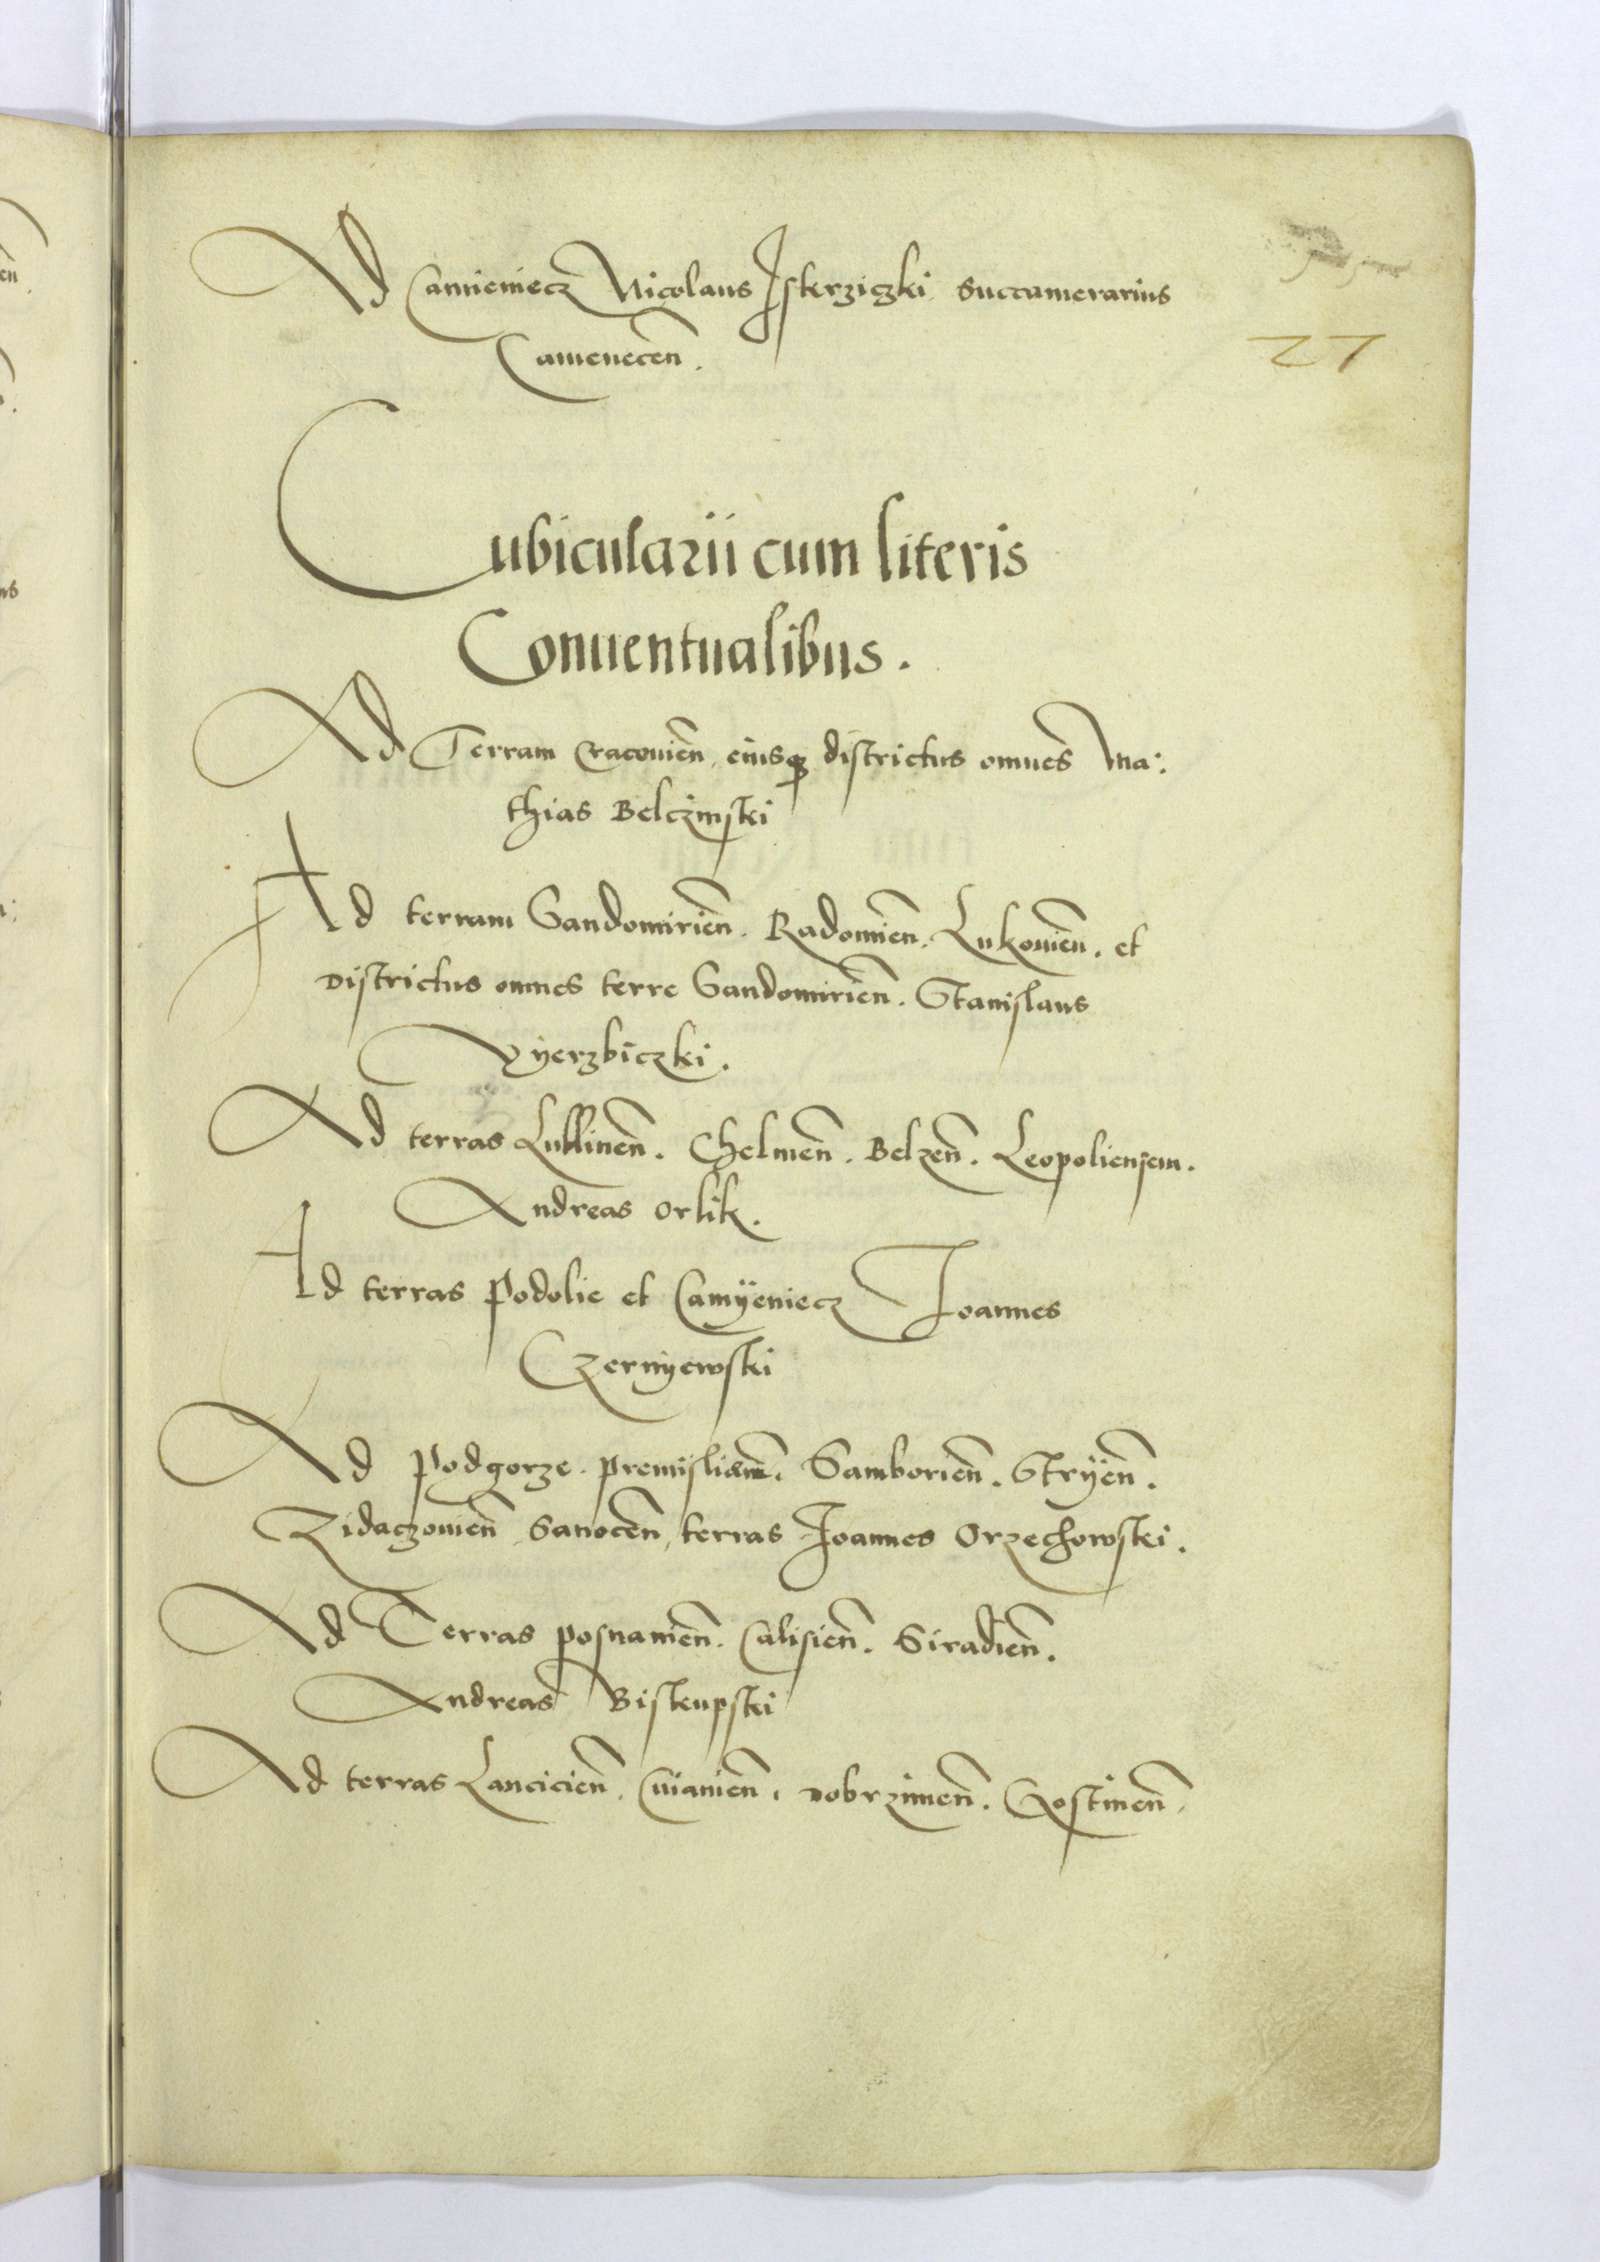 Ad Camieniecz Nicolaus Iskerziczki Succamerarius
27
Camenecen̄.
Cubicularii cum literis
Conuentualibus.
Ad Terram Cracouien̄, eiusq districtus omnes Ma:
thias Belczinski
Ad terram Sandomirien̄. Radomien̄. Lukouien̄. et
Districtus omnes terre Sandomirien̄. Stanislaus
Vyerzbiczki.
Ad terras Lublinen̄. Chelmen̄. Belzen̄. Leopoliensem.
Andreas Orlik.
Ad terras Podolie et Camÿeniecz Ioannes
Czernyewski
Ad Podgorze. Premislien̄. Samborien̄. Stryen̄.
Zidaczouien̄, Sanocen̄, terras Ioannes Orzechowski.
Ad Terras Posnanien̄. Calisien̄. Siradien̄.
Andreas Biskupski
Ad terras Lancicien̄. Cuianien̄. Dobrzinen̄. Gostinen̄.